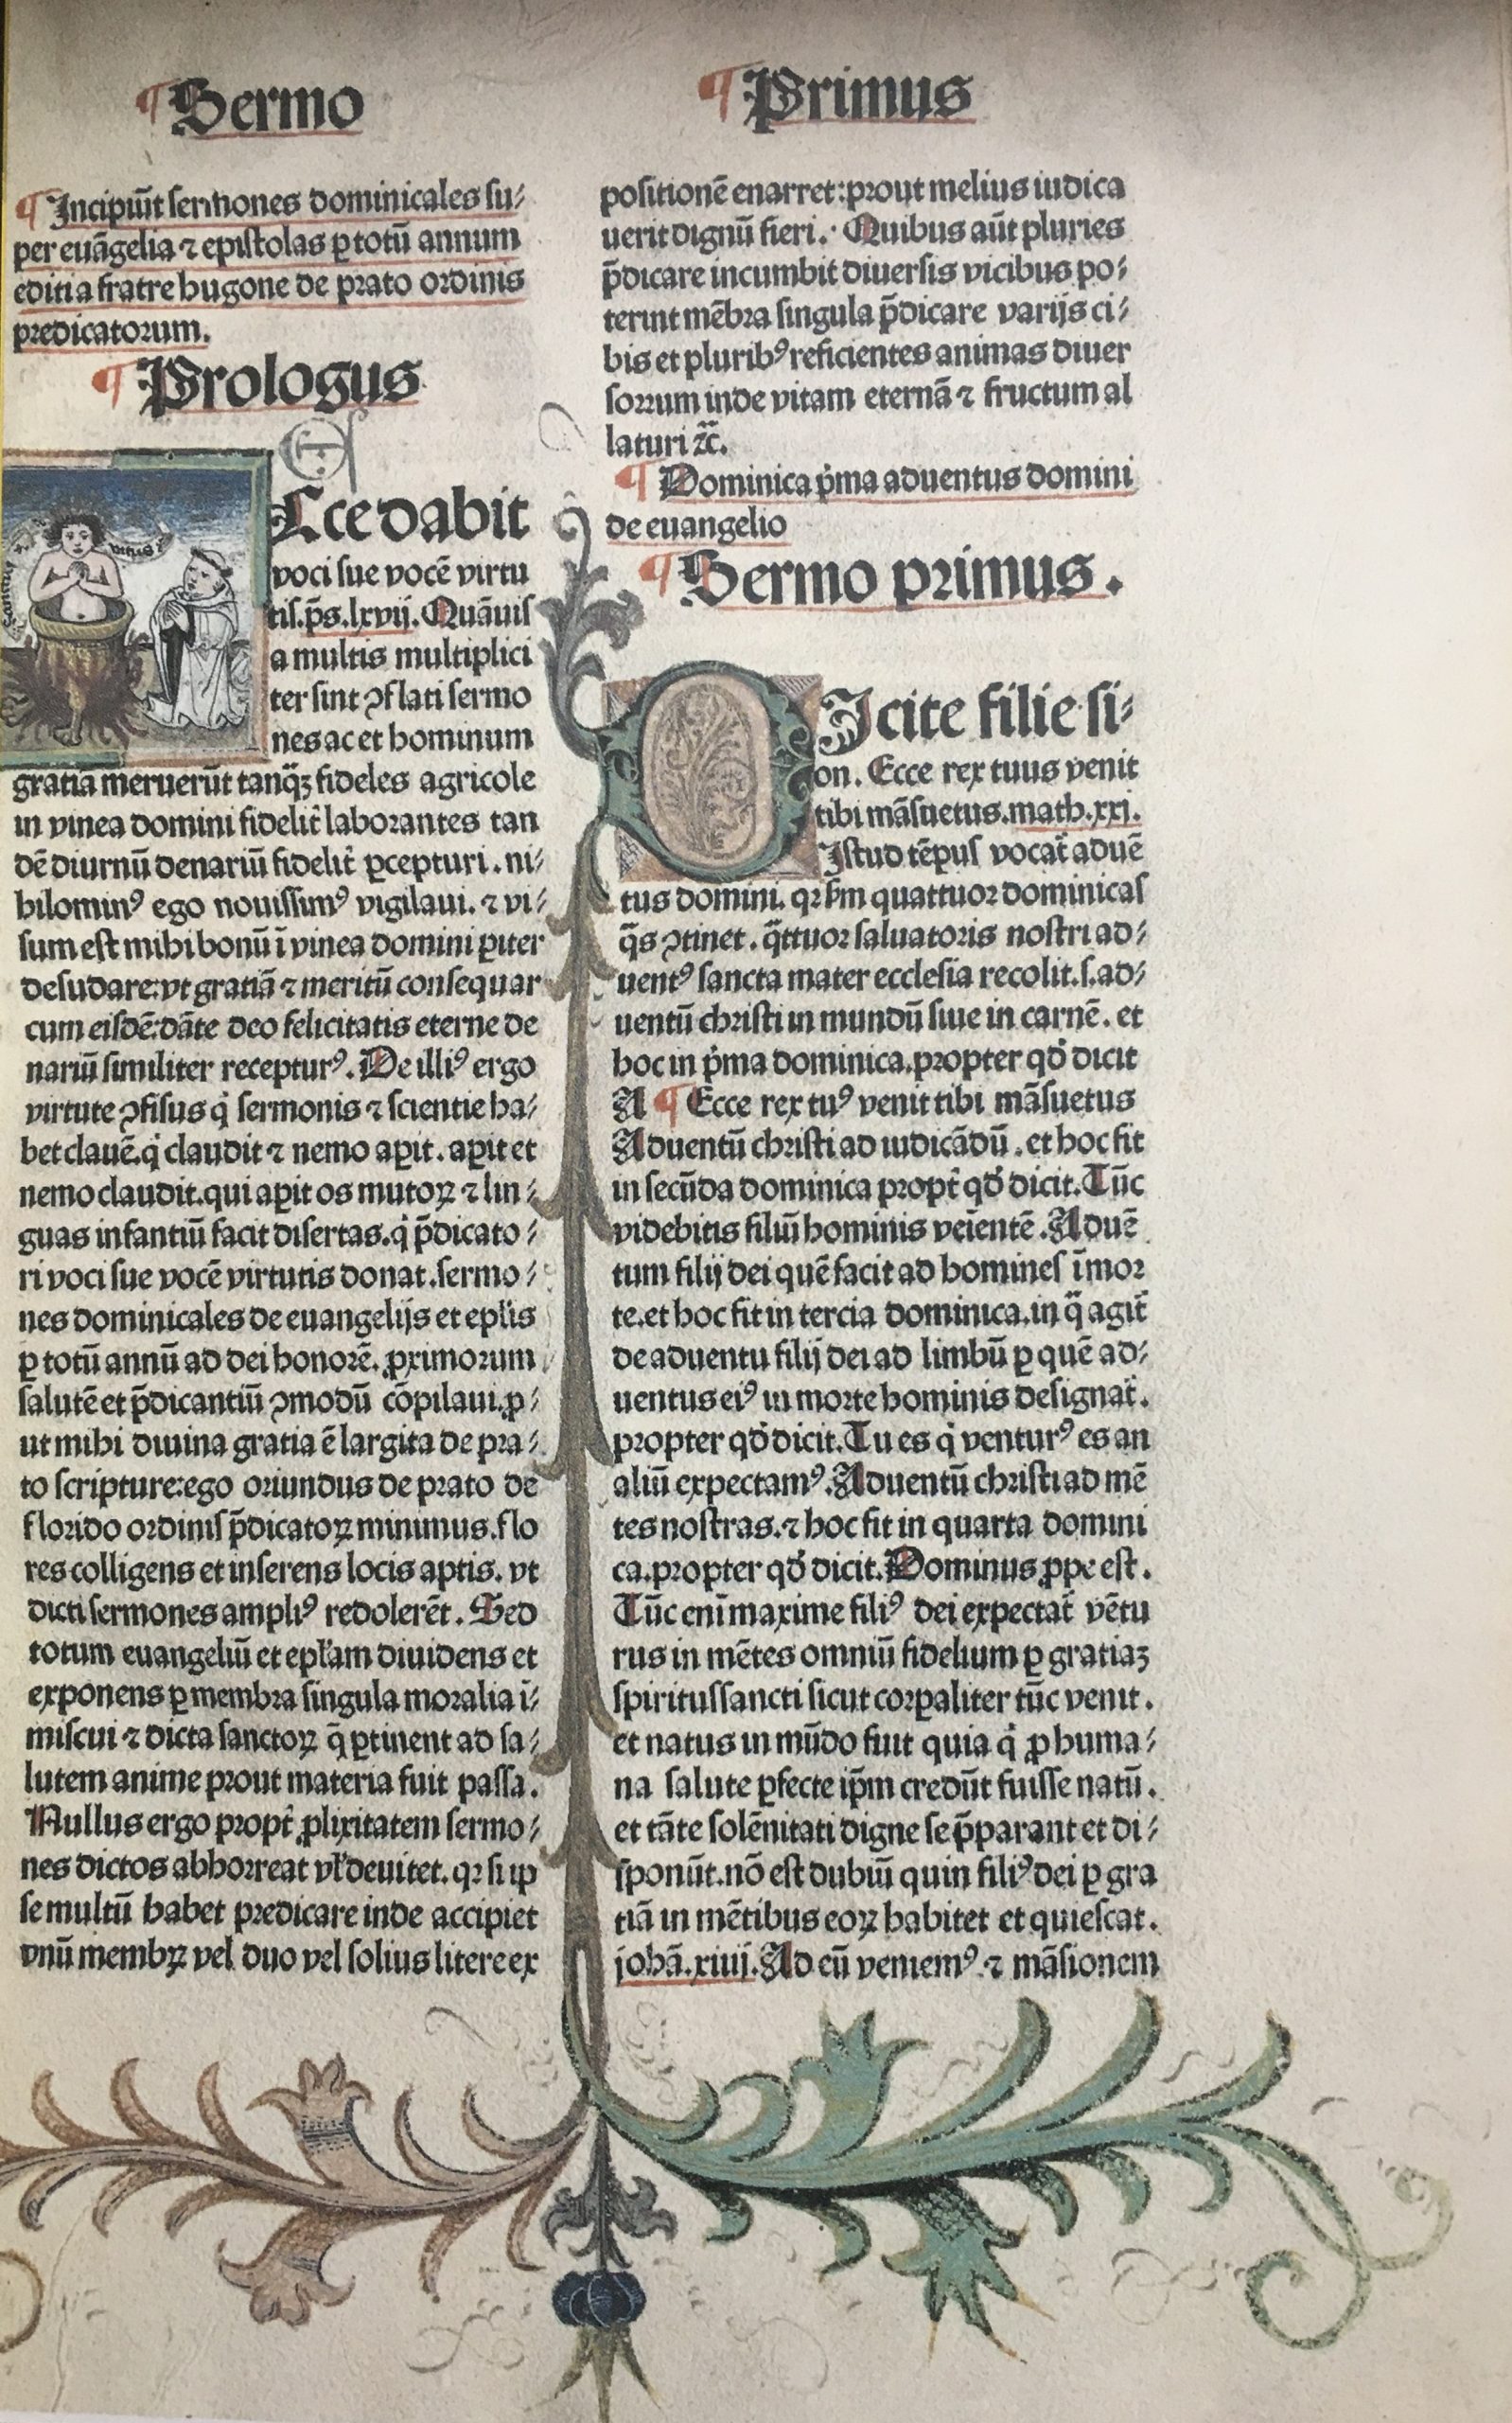 ¶ Sermo
¶ Primus
¶ Incipiūt sermones dominicales su⸗
per euāgelia ⁊ epistolas ꝑ totū annum
editi a fratre hugone de prato ordinis
predicatorum.
¶ Prologus
Ecce dabit
voci sue vocē virtu
tis. p̄s. lxvij. Quāuis
a multis multiplici
ter sint ꝯflati sermo
nes ac et hominum
gratiā meruerūt tanqȝ fideles agricole
in vinea domini fidelit̉ laborantes tan
dē diurnū denariū fidelit̉ ꝑcepturi. ni⸗
hilominꝰ ego nouissimꝰ vigilaui. ⁊ vi⸗
sum est mihi bonū ī vinea domini ꝑiter
desudare: vt gratiā ⁊ meritū consequar
cum eisdē: dāte deo felicitatis eterne de
nariū similiter recepturꝰ. De illiꝰ ergo
virtute ꝯfisus q̇ sermonis ⁊ scientie ha⸗
bet clauē. q̇ claudit ⁊ nemo aꝑit. aꝑit et
nemo claudit. qui aꝑit os mutoꝝ ⁊ lin⸗
guas infantiū facit disertas. q̇ p̄dicato⸗
ri voci sue vocē virtutis donat. sermo⸗
nes dominicales de euangelijs et epl̄is
ꝑ totū annū ad dei honorē. ꝓximorum
salutē et p̄dicantiū ꝯmodū cōpilaui. ꝓ⸗
ut mihi diuina gratia ē largita de pra⸗
to scripture: ego oriundus de prato de
florido ordinis p̄dicatoꝝ minimus. flo
res colligens et inserens locis aptis. vt
dicti sermones ampliꝰ redolerēt. Sed
totum euangeliū et epl̄am diuidens et
exponens ꝑ membra singula moralia ī⸗
miscui ⁊ dicta sanctoꝝ q̄ ꝑtinent ad sa⸗
lutem anime prout materia fuit passa.
Nullus ergo propt̉ ꝓlixitatem sermo⸗
nes dictos abhorreat vl̄ deuitet. qꝛ si ip
se multū habet predicare inde accipiet
vnū membꝝ vel duo vel solius litere ex
positionē enarret: prout melius iudica
uerit dignū fieri. Quibus aūt pluries
p̄dicare incumbit diuersis vicibus po⸗
terint mēbra singula p̄dicare varijs ci⸗
bis et pluribꝰ reficientes animas diuer
sorum inde vitam eternā ⁊ fructum al
laturi ⁊c̄.
¶ Dominica p̍ma aduentus domini
de euangelio
¶ Sermo primus.
DIcite filie si⸗
on. Ecce rex tuus venit
tibi māsuetus. math. xxi.
Istud tēpus vocat̉ aduē
tus domini. qꝛ sm̄ quattuor dominicas
q̄s ꝯtinet. q̄ttuor saluatoris nostri ad⸗
uentꝰ sancta mater ecclesia recolit. s. ad⸗
uentū christi in mundū siue in carnē. et
hoc in p̍ma dominica. propter qd̄ dicit
A ¶ Ecce rex tuꝰ venit tibi māsuetus
Aduentū christi ad iudicādū. et hoc fit
in secūda dominica propt̉ qd̄ dicit. Tūc
videbitis filiū hominis veīentē. Aduē
tum filij dei quē facit ad homines ī mor
te. et hoc fit in tercia dominica. in q̄ agit̉
de aduentu filij dei ad limbū ꝑ quē ad⸗
uentus eiꝰ in morte hominis designat̉.
propter qd̄ dicit. Tu es q̇ venturꝰ es an
aliū expectamꝰ. Aduentū christi ad mē
tes nostras. ⁊ hoc fit in quarta domini
ca. propter qd̄ dicit. Dominus ꝓpe est.
Tūc eni maxime filiꝰ dei expectat̉ vētu
rus in mētes omniū fidelium ꝑ gratiaȝ
spiritussancti sicut corꝑaliter tūc venit.
et natus in mūdo fuit quia q̇ ꝓ huma⸗
na salute ꝑfecte ip̄m credūt fuisse natū.
et tāte solēnitati digne se p̄parant et di⸗
sponūt. nō est dubiū quin filiꝰ dei ꝑ gra
tiā in mētibus eoꝝ habitet et quiescat.
johā. xiiij. Ad eū veniemꝰ. ⁊ māsionem